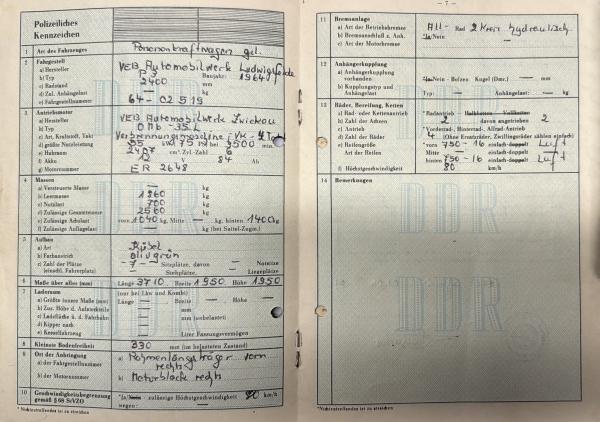 Polizeiliches
Kennzeichen
1 Art des Fahrzeuges Personenkraftwagen gel.
2 Fahrgestell
a) Hersteller VEB Automobilwerk Ludwigsfelde
b) Typ P3 Baujahr: 1964
c) Radstand 2400 mm
d) Zul. Anhängelast — kg
e) Fahrgestellnummer 64-02519
3 Antriebsmotor
a) Hersteller VEB Automobilwerke Zwickau
b) Typ OM6-35L
c) Art, Kraftstoff, Takt Verbrennungsmaschine VK-4Takt
d) größte Nutzleistung 55 75 3500 min.
e) Hubraum 2407 cm³ Zyl.-Zahl 6
f) Akku 12 V 84 Ah
g) Motornummer ER 2648
4 Massen
a) Versteuerte Masse — kg
b) Leermasse 1860 kg
c) Nutzlast 700 kg
d) Zulässige Gesamtmasse 2560 kg
e) Zulässige Achslast vorn 1040 kg, Mitte — kg, hinten 1400 kg
f) Zulässige Auflagelast — kg (bei Sattel-Zugm.)
5 Aufbau
a) Art Kübel
b) Farbanstrich olivgrün
c) Zahl der Plätze -7- Sitzplätze, davon — Notsitze
(einschl. Fahrerplatz) — Stehplätze, — Liegeplätze
6 Maße über alles (mm) Länge 3710 Breite 1950 Höhe 1950
7 Laderaum (nur bei Lkw und Kombi)
a) Größte innere Maße (mm) Länge — Breite — Höhe —
b) Zus. Höhe d. Aufsteckteile — mm
c) Ladefläche ü. d. Fahrbahn — mm (unbelastet)
d) Kipper nach —
e) Kesselfahrzeug — Liter Fassungsvermögen
8 Kleinste Bodenfreiheit 330 mm (im belasteten Zustand)
9 Ort der Anbringung
a) der Fahrgestellnummer a) Rahmenlängsträger vorn
rechts
b) der Motornummer b) Motorblock rechts
10 Geschwindigkeitsbegrenzung *Ja/Nein - zulässige Höchstgeschwindigkeit 80 km/h
gemäß § 68 StVZO wegen: —
* Nichtzutreffendes ist zu streichen
— 7 —
11 Bremsanlage
a) Art der Betriebsbremse All- Rad 2 Kreis hydraulisch
b) Bremsanschluß z. Anh. *Ja/Nein
c) Art der Motorbremse —
12 Anhängerkupplung
a) Anhängerkupplung
vorhanden *Ja/Nein - Bolzen Kugel (Dmr.) — mm
b) Kupplungstyp und
Anhängelast Typ: — Anhängelast: — kg
13 Räder, Bereifung, Ketten
a) Rad- oder Kettenantrieb *Radantrieb Halbketten Vollketten
b) Zahl der Achsen 2 davon angetrieben 2
c) Antrieb *Vorderrad-, Hinterrad-, Allrad-Antrieb
d) Zahl der Räder 4 (Ohne Ersatzräder, Zwillingsräder zählen einfach)
e) Reifengröße *vorn 750-16 einfach-doppelt Luft
Art der Reifen Mitte — einfach-doppelt —
hinten 750-16 einfach-doppelt Luft
f) Höchstgeschwindigkeit 80 km/h
14 Bemerkungen
DDR
DDR
*Nichtzutreffendes ist zu streichen